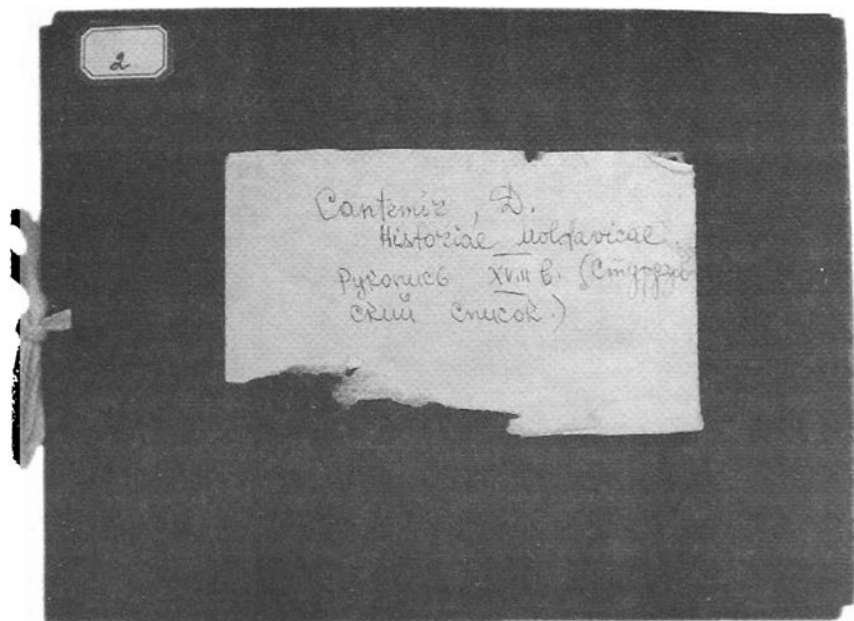 2
Cantemir, D.
Historiae Moldavicae
Рукопись XVIII в. (Стурдзов-
ский список.)